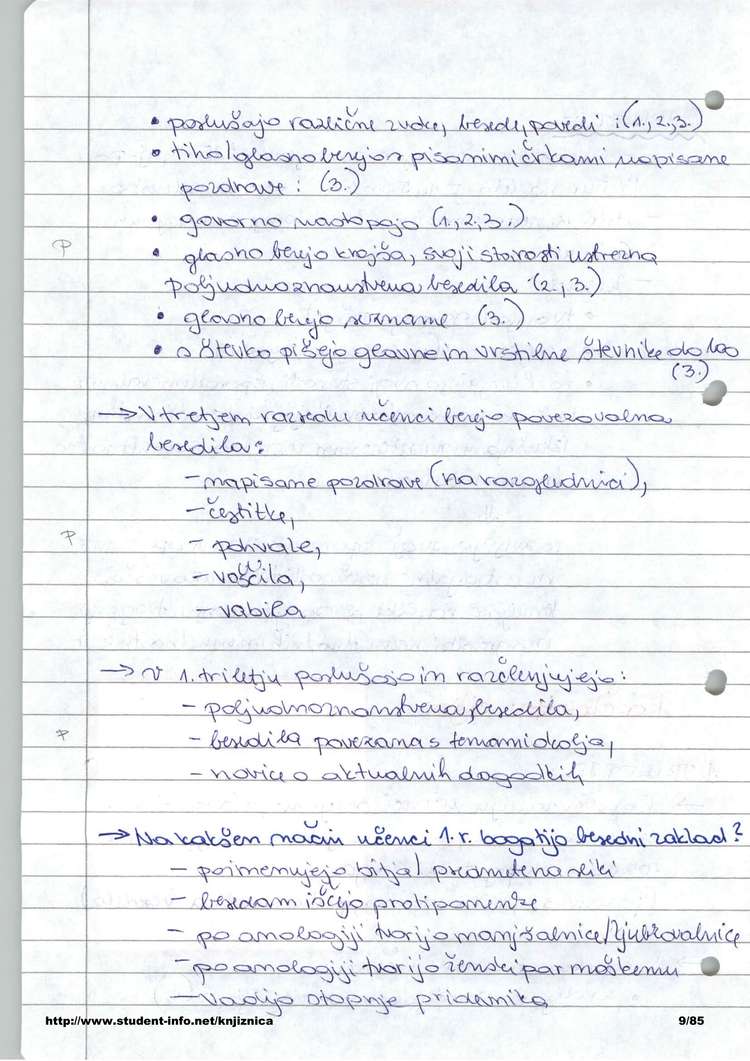 • poslušajo različne zvoke, besede, povedi : (1., 2., 3.)
• tiho/glasno berejo s pisanimi črkami napisane
pozdrave : (3.)
• govorno nastopajo (1., 2., 3.)
P
• glasno berejo krajša, svoji starosti ustrezna
poljudnoznanstvena besedila (2., 3.)
• glasno berejo sezname (3.)
• s števko pišejo glavne in vrstilne števnike do 100
(3.)
→ V tretjem razredu učenci berejo povezovalna
besedila:
- napisane pozdrave (na razglednici),
- čestitke,
P
- pohvale,
- voščila,
- vabila
→ V 1. triletju poslušajo in razčlenjujejo:
- poljudnoznanstvena besedila,
P
- besedila povezana s temami okolja,
- novice o aktualnih dogodkih
→ Na kakšen način učenci 1. r. bogatijo besedni zaklad?
- poimenujejo bitja/predmete na sliki
- besedam iščejo protipomenke
- po analogiji tvorijo manjšalnice/ljubkovalnice
- po analogiji tvorijo ženski par moškemu
- vadijo stopnje pridevnika
http://www.student-info.net/knjiznica 9/85